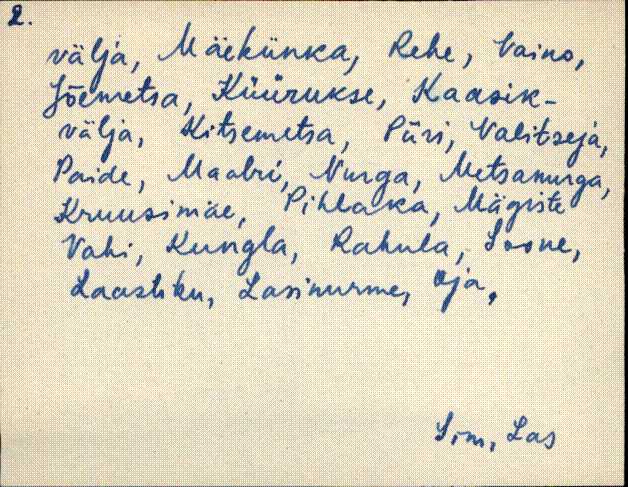 2.
välja, Mäekünka, Rehe, Vaino,
Jõemetsa, Küürukse, Kaasik-
välja, Kitsemetsa, Püri, Valitseja,
Paide, Maabri, Nurga, Metsanurga,
Kruusimäe, Pihlaka, Mägiste
Vahi, Kungla, Rahula, Soone,
Laastiku, Lasinurme, Oja,
Sim, Las